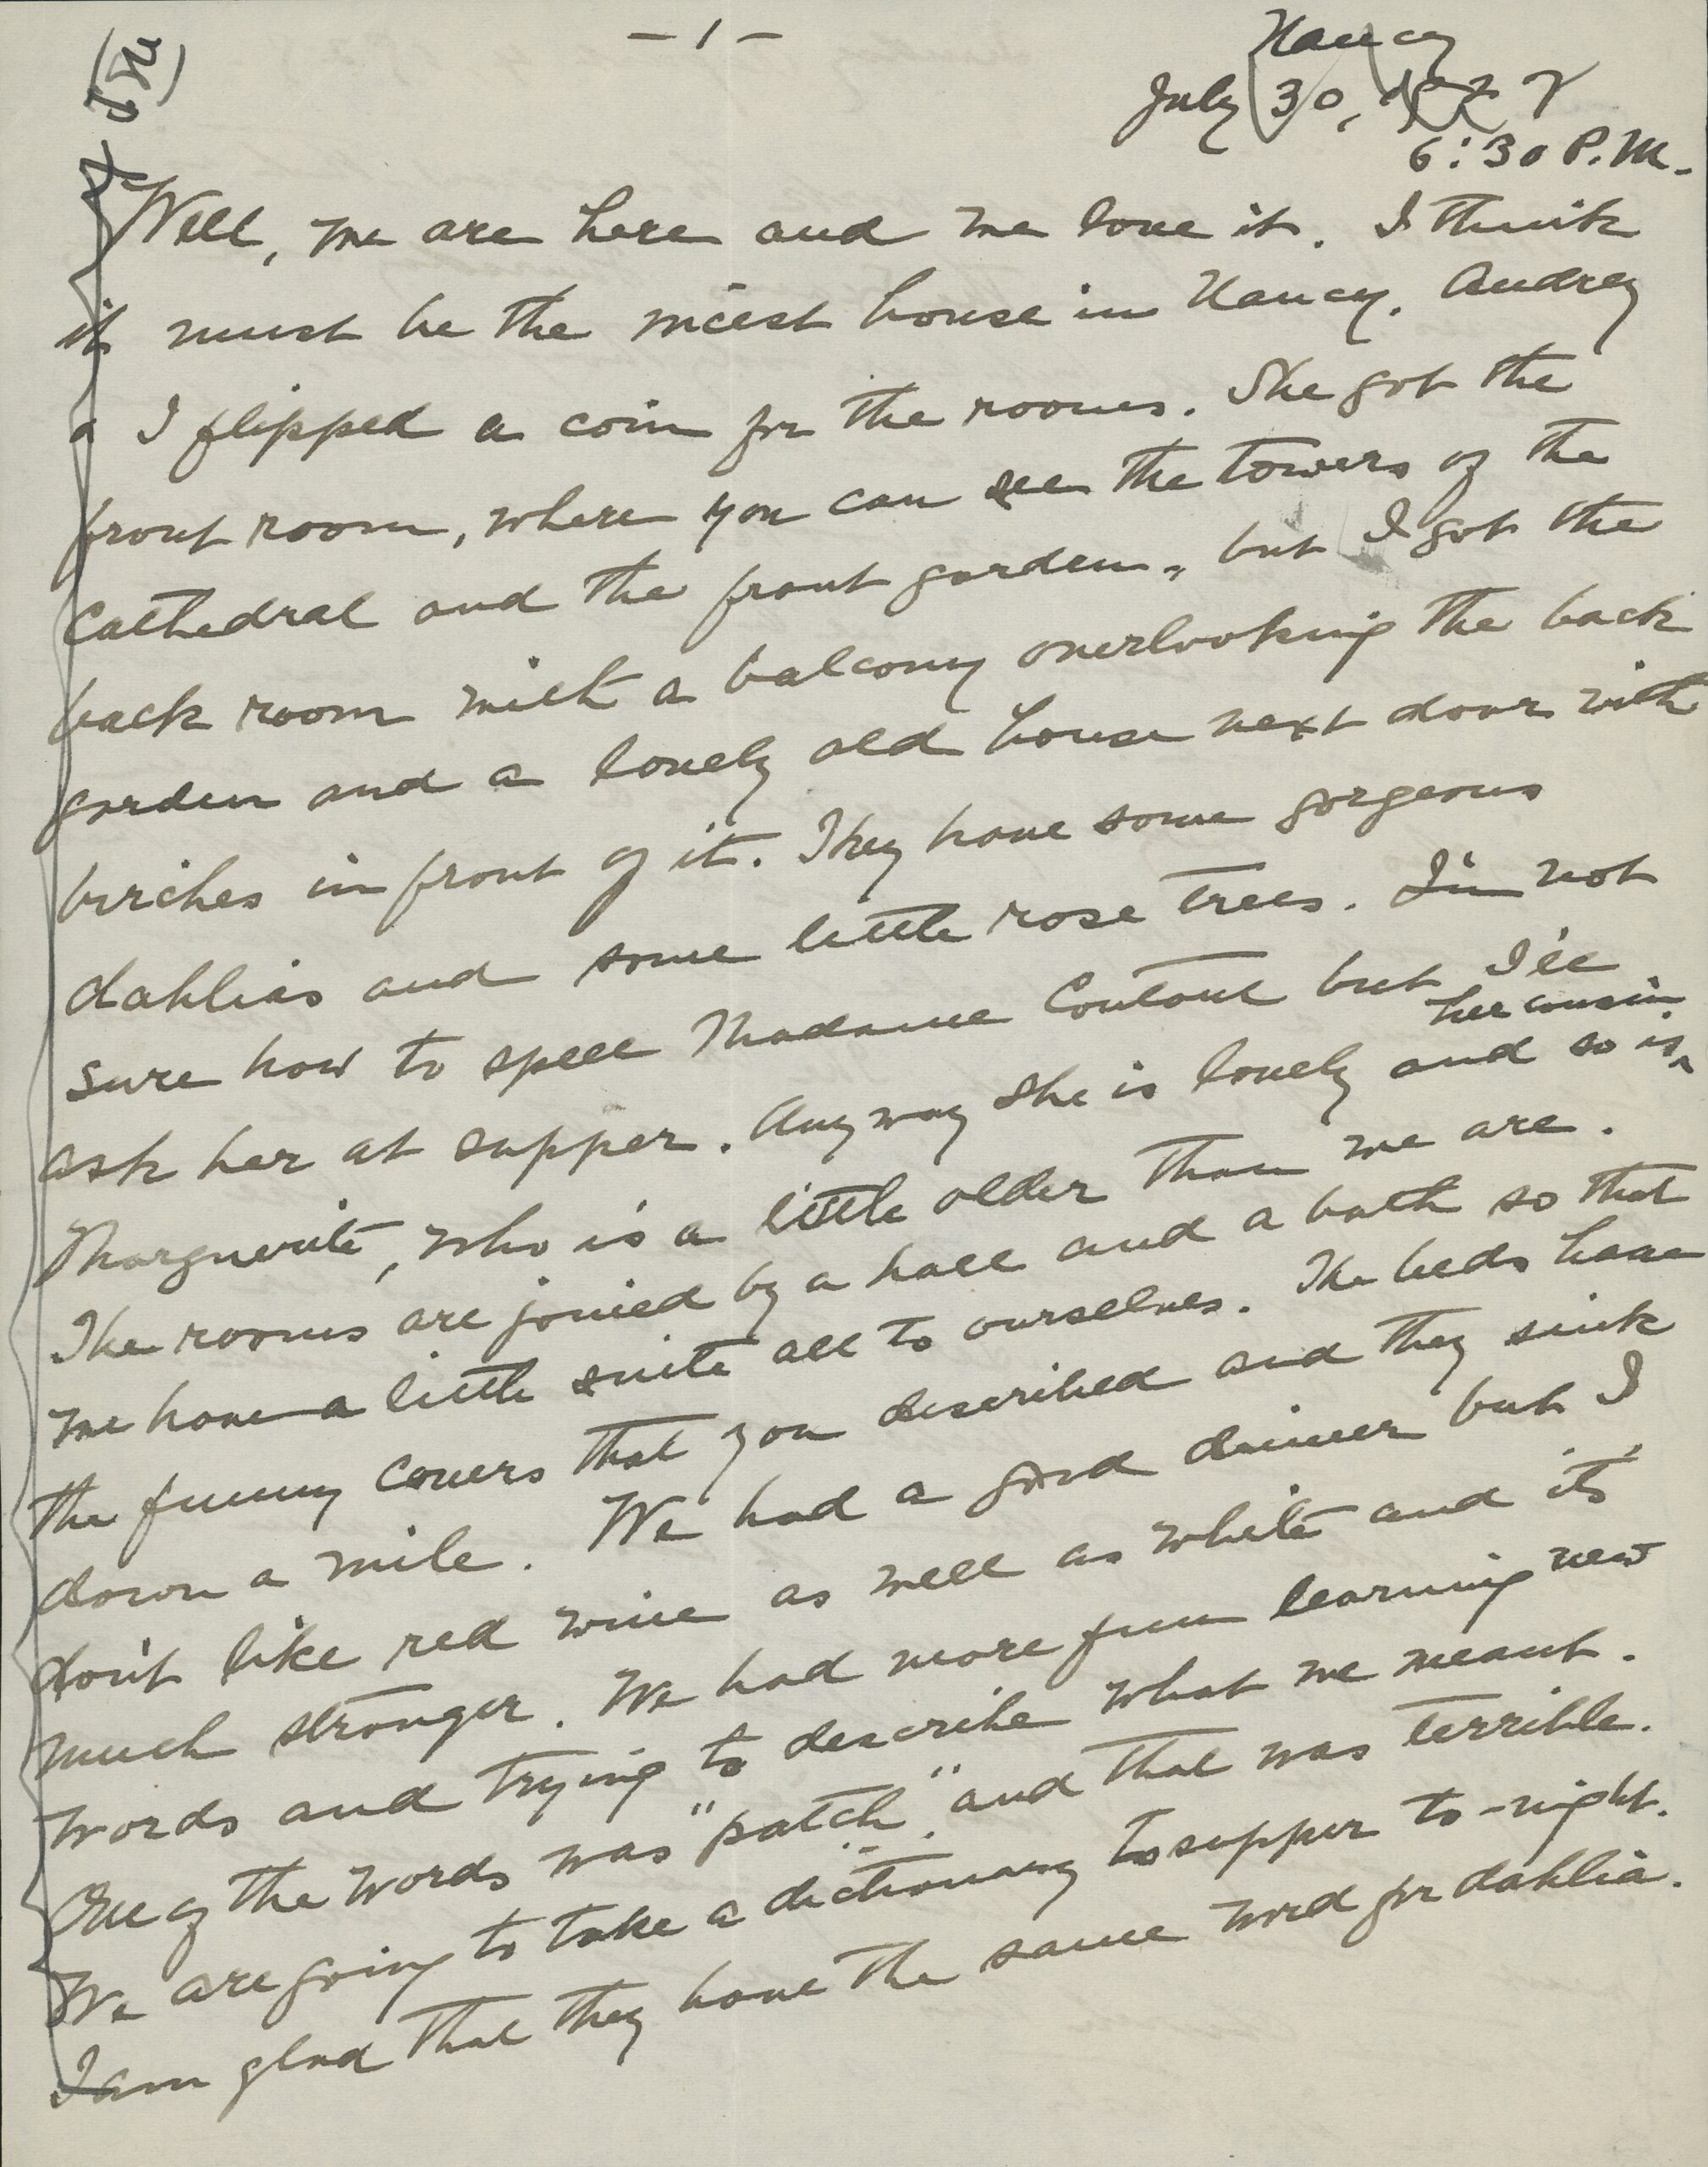 - 1 -
Nancy
July 30,
6:30 P.M.
Well, we are here and we love it. I think
it must be the nicest house in Nancy. Audrey
& I flipped a coin for the rooms. She got the
front room, where you can see the towers of the
Cathedral and the front garden, but I got the
back room with a balcony overlooking the back
garden and a lovely old house next door with
birches in front of it. They have some gorgeous
dahlias and some little rose trees. I'm not
sure how to spell Madame Contoul but I'll
ask her at supper. Anyway she is lovely and so is her cousin,
Marguerite, who is a little older than we are.
The rooms are joined by a hall and a bath so that
we have a little suite all to ourselves. The beds have
the funny covers that you described and they sink
down a mile. We had a good dinner but I
don't like red wine as well as white and it's
much stronger. We had more fun learning new
words and trying to describe what we meant.
One of the words was "patch" and that was terrible.
We are going to take a dictionary to supper to-night.
I am glad that they have the same word for dahlia.